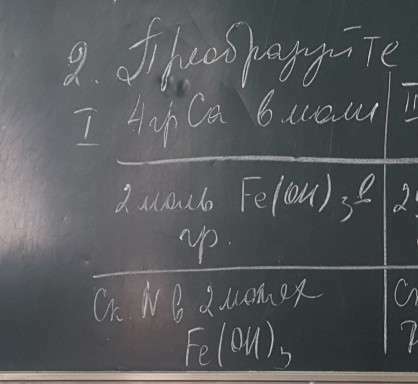 2. Преобразуйте
I 4 гр Ca в моли II
2 моль Fe(OH)3 в 2
гр.
Ск. N в 2 молях Ск
Fe(OH)3